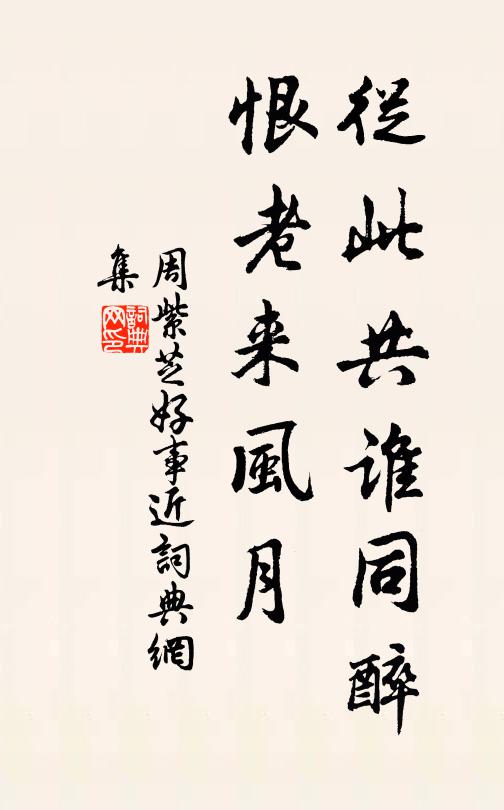 從此共誰同醉
恨老来風月
周紫芝好事近詞典網
集
詞典
网印